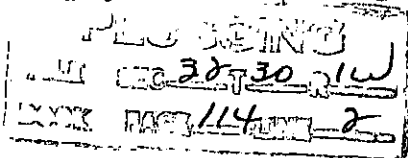 PLUGGING
FILE SEC 32 T 30 R 1W
BOOK PAGE 114 LINE 2